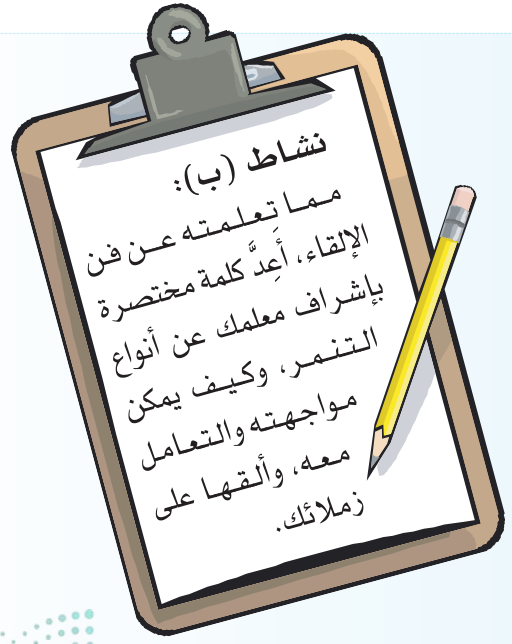 نشاط (ب):
مما تعلمته عن فن
الإلقاء، أَعِدَّ كلمة مختصرة
بإشراف معلمك عن أنواع
التنمر، وكيف يمكن
مواجهته والتعامل
معه، وألقها على
زملائك.